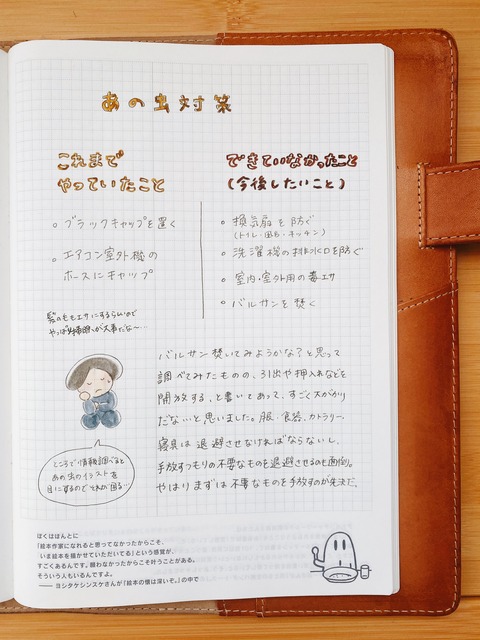 あの虫対策
これまで
やっていたこと
ブラックキャップを置く
エアコン室外機の
ホースにキャップ
できていなかったこと
(今後したいこと)
換気扇を防ぐ
(トイレ・風呂・キッチン)
洗濯機の排水口を防ぐ
室内・室外用の毒エサ
バルサンを焚く
髪の毛もエサにするらしいので
やっぱ掃除が大事だな〜…
バルサン焚いてみようかな?と思って
調べてみたものの、引出や押入れなどを
開放する、と書いてあって、すごく大がかり
だないと思いました。服・食器、カトラリー、
寝具は退避させなければならないし、
手放すつもりの不要なものを退避させるのも面倒。
やはりまずは不要なものを手放すのが先決だ。
ところで情報調べると
あの虫のイラストを
目にするのでそれが困る…
ぼくはほんとに
「絵本作家になれると思ってなかったからこそ、
いま絵本を描かせていただいてる」という感覚が、
すごくあるんです。願わなかったからこそ叶うことがある。
そういう人もいるんですよ。
―― ヨシタケシンスケさんが「絵本の懐は深いぞ。」の中で